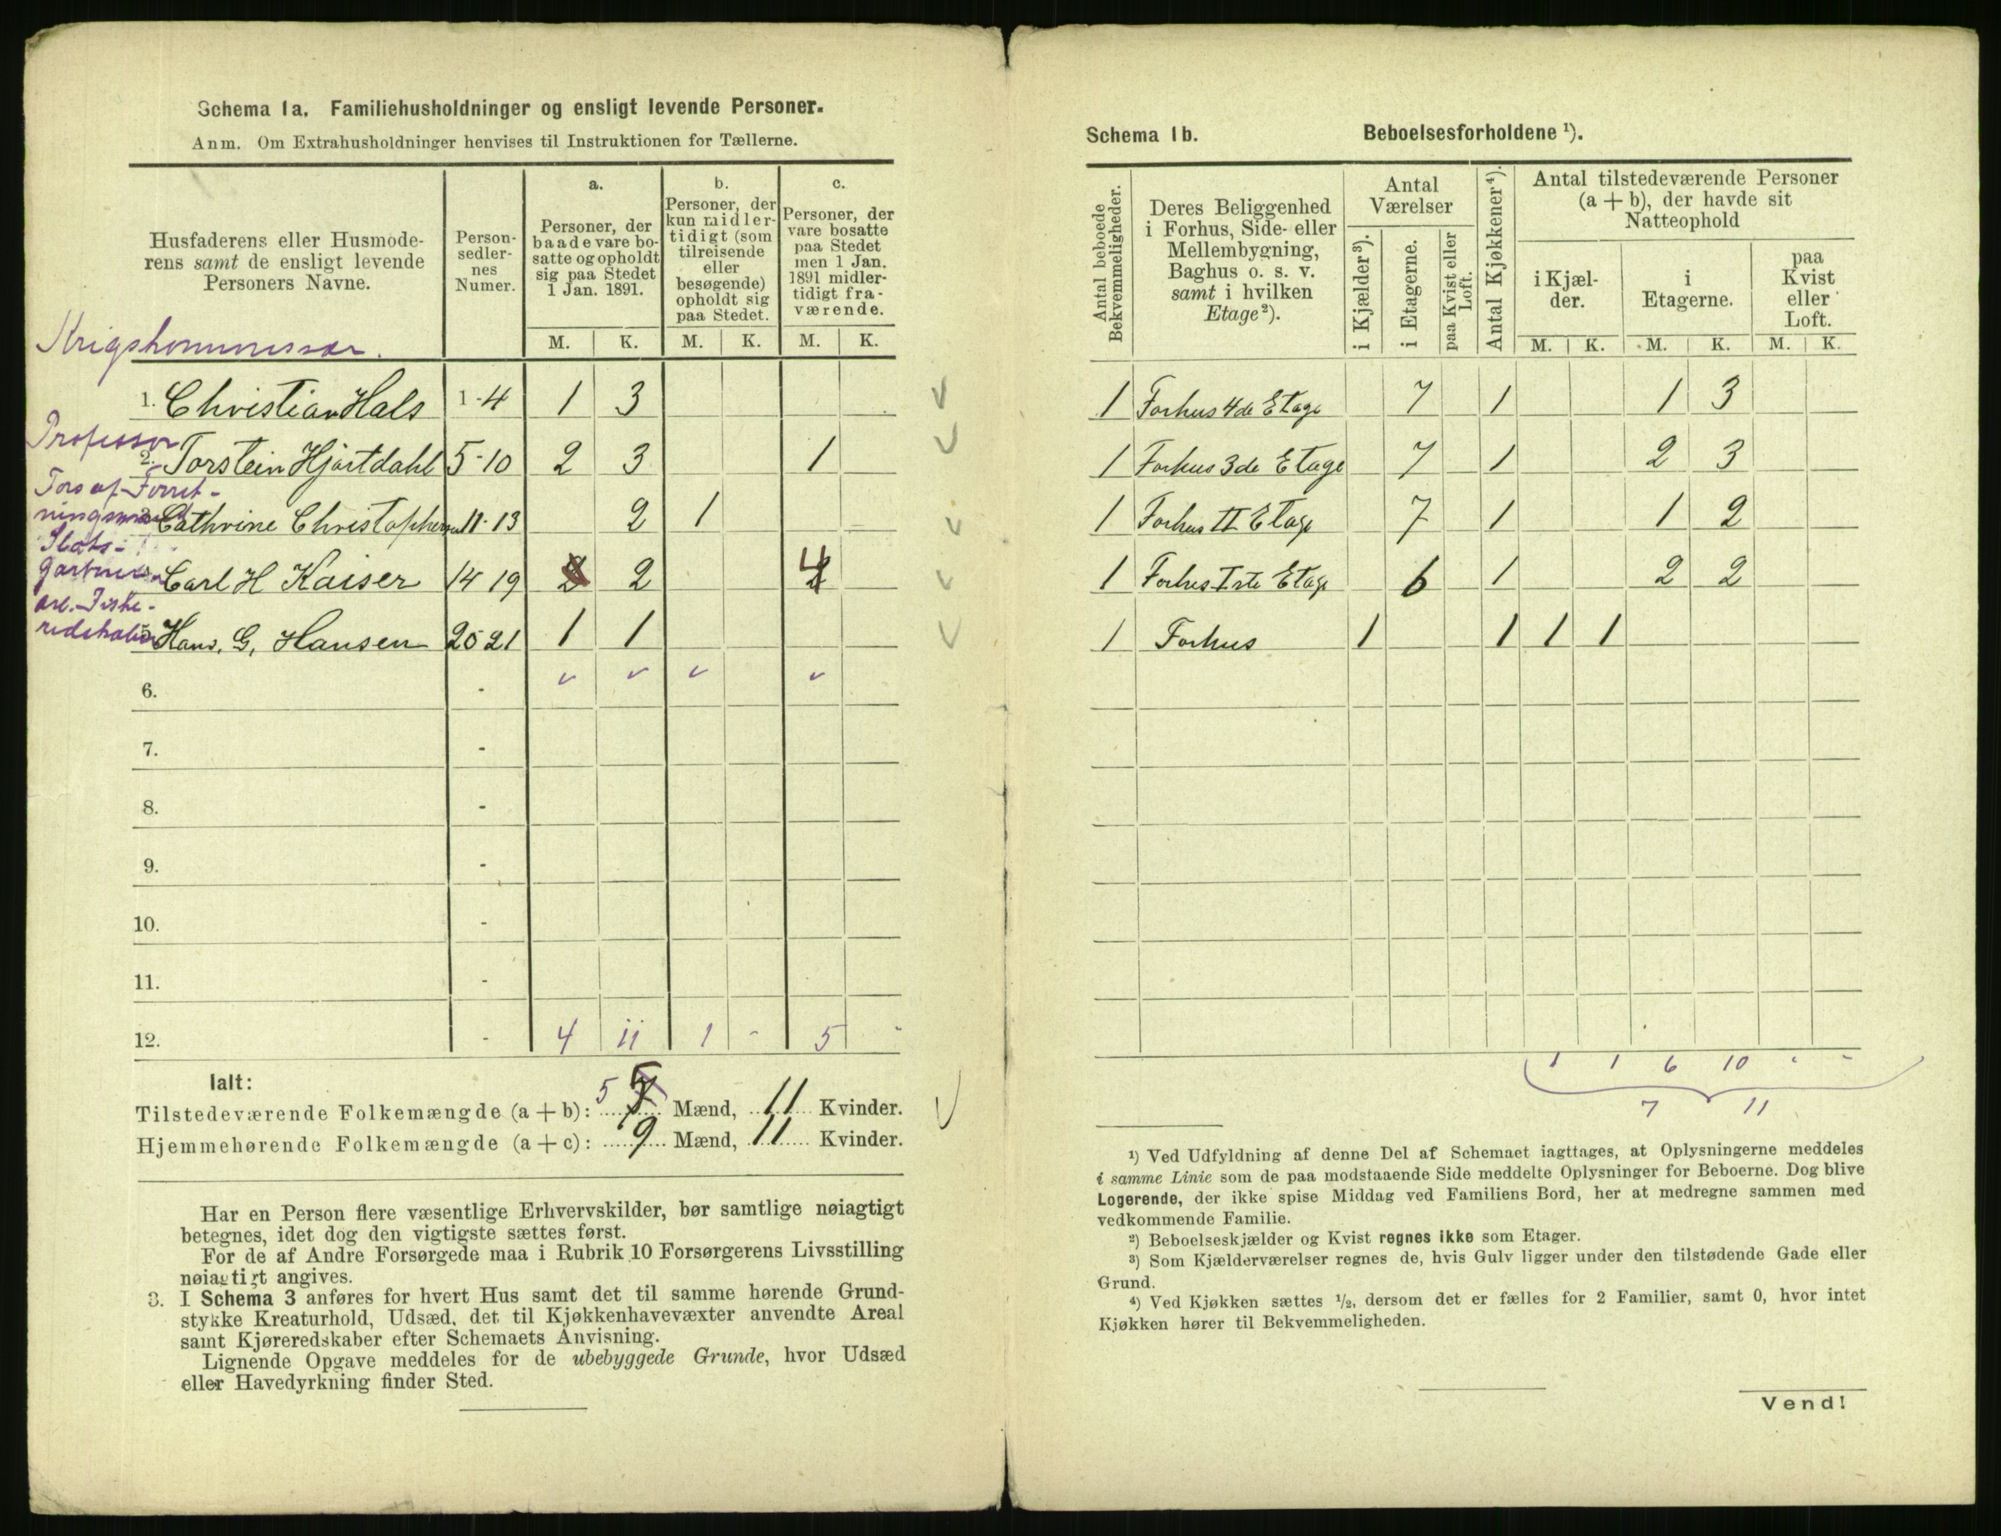 Schema 1a. Familiehusholdninger og ensligt levende Personer.
Anm. Om Extrahusholdninger henvises til Instruktionen for Tællerne.
Husfaderens eller Husmode-
rens samt de ensligt levende
Personers Navne.
Person-
sedler-
nes
Numer.
a.
Personer, der
baade vare bo-
satte og opholdt
sig paa Stedet
1 Jan. 1891.
b.
Personer, der
kun midler-
tidigt (som
tilreisende
eller
besøgende)
opholdt sig
paa Stedet.
c.
Personer, der
vare bosatte
paa Stedet
men 1 Jan.
1891 midler-
tidigt fra-
værende.
M. K. M. K. M. K.
Krigskommissær.
1. Christian Hals 1-4 1 3
Professor
2. Torstein Hjortdahl 5-10 2 3 1
Fors af Forret-
ningsmand
Cathrine Christophersen 11-13 2 1
Slots-
gartner
Carl H Kaiser 14 19 2 4
arb. Fiske-
redskaber
Hans. G. Hansen 20 21 1 1
6. -
7. -
8. -
9. -
10. -
11. -
12. - 4 11 1 - 5 -
Ialt:
Tilstedeværende Folkemængde (a + b): 5 5 Mænd, 11 Kvinder.
Hjemmehørende Folkemængde (a + c): 9 Mænd, 11 Kvinder.
Har en Person flere væsentlige Erhvervskilder, bør samtlige nøiagtigt
betegnes, idet dog den vigtigste sættes først.
For de af Andre Forsørgede maa i Rubrik 10 Forsørgerens Livsstilling
nøiagtigt angives.
3. I Schema 3 anføres for hvert Hus samt det til samme hørende Grund-
stykke Kreaturhold, Udsæd, det til Kjøkkenhavevæxter anvendte Areal
samt Kjøreredskaber efter Schemaets Anvisning.
Lignende Opgave meddeles for de ubebyggede Grunde, hvor Udsæd
eller Havedyrkning finder Sted.
Schema 1b. Beboelsesforholdene ¹).
Antal beboede
Bekvemmeligheder.
Deres Beliggenhed
i Forhus, Side- eller
Mellembygning,
Baghus o. s. v.
samt i hvilken
Etage²).
Antal
Værelser
i Kjælder³).
i Etagerne.
paa Kvist eller
Loft.
Antal Kjøkkener⁴).
Antal tilstedeværende Personer
(a + b), der havde sit
Natteophold
i Kjæl-
der.
i
Etagerne.
paa
Kvist
eller
Loft.
M. K. M. K. M. K.
1 Forhus 4de Etage 7 1 1 3
1 Forhus 3de Etage 7 1 2 3
1 Forhus II Etage 7 1 1 2
1 Forhus Iste Etage 6 1 2 2
1 Forhus 1 1 1 1
1 1 6 10 - -
7 11
¹) Ved Udfyldning af denne Del af Schemaet iagttages, at Oplysningerne meddeles
i samme Linie som de paa modstaaende Side meddelte Oplysninger for Beboerne. Dog blive
Logerende, der ikke spise Middag ved Familiens Bord, her at medregne sammen med
vedkommende Familie.
²) Beboelseskjælder og Kvist regnes ikke som Etager.
³) Som Kjælderværelser regnes de, hvis Gulv ligger under den tilstødende Gade eller
Grund.
⁴) Ved Kjøkken sættes ½, dersom det er fælles for 2 Familier, samt 0, hvor intet
Kjøkken hører til Bekvemmeligheden.
Vend!